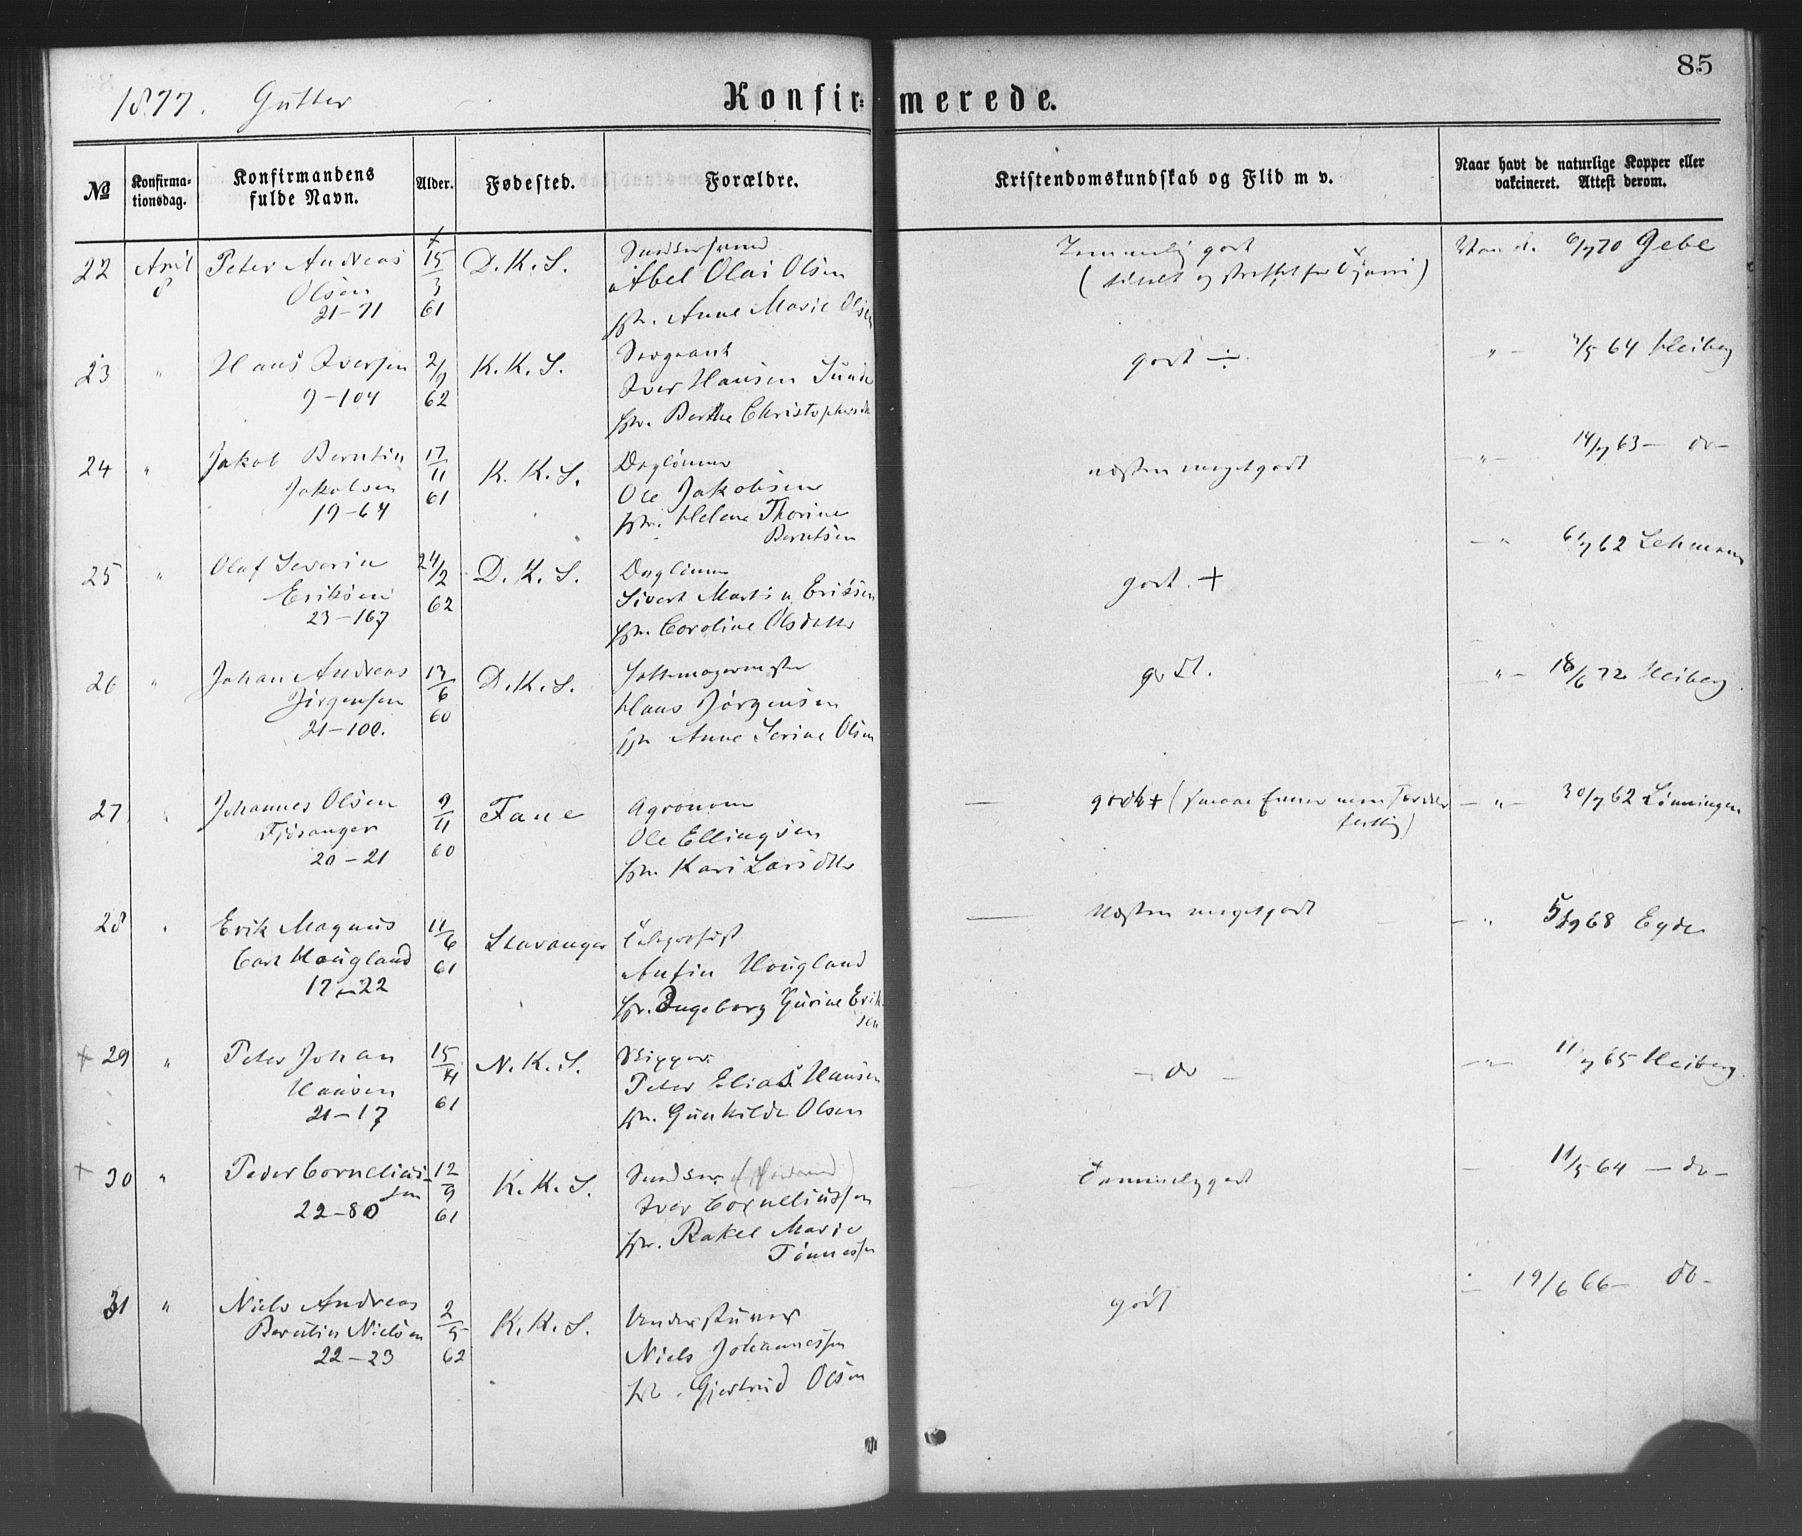 85
1877. Gutter
Konfirmerede.
№
Konfirma-
tionsdag.
Konfirmandens
fulde Navn.
Alder.
Fødested.
Forældre.
Kristendomskundskab og Flid m v.
Naar havt de naturlige Kopper eller
vakcineret. Attest derom.
22 April 8
Peter Andreas
Olsen
21-71
15/3 61
D. K. S.
Abel Olai Olsen
Anne Marie Olsen
Temmelig godt
6/7 70 Gebe
23 "
Hans Iversen
9-104
2/9 62
K. K. S.
Sergeant
Iver Hansen Sunde
Berthe Christophersdtr
godt ÷
64 Heiberg
24 "
Jakob Berntin
Jakobsen
19-64
17/11 61
K. K. S.
Daglønner
Ole Jakobsen
Helene Thorine
Berntsen
næsten megetgodt
14/7 63 - do -
25 "
Olaf Severin
Eriksen
23-167
24/2 62
D. K. S.
Daglønner
Sivert Martin Eriksen
Caroline Olsdatter
godt. +
62 Lehmann
26 "
Johan Andreas
Jörgensen
21-100.
13/6 60
D. K. S.
Hans Jørgensen
Anne Serine Olsen
godt.
- " - 18/6 72 Heiberg
27 "
Johannes Olsen
Fjösanger
20-21
9/11 60
Fane
Agronom
Ole Ellingsen
Kari Larsdtr
godt +
- " - 30/7 62 Lönningen
28 "
Erik Magnus
Carl Hougland
17-22
11/6 61
Stavanger
Telegrafist
Anfin Hougland
Ingeborg Gurine Erik-
sen
Næsten megetgodt
- " 68 Egde
+ 29 "
Peter Johan
Hansen
21-17
15/4 61
N. K. S.
Rigger
Peter Elias Hansen
Gunhilde Olsen
- do -
- " - 11/7 65 Heiberg.
+ 30 "
Peder Cornelius-
sen
22-80
12/9 61
K. K. S.
Iver Corneliussen
Rakel Marie
Tönnessen
Temmeliggodt
- 11/5 64 - do -
31 "
Niels Andreas
Berntin Nielsen
22-23
2/5 62
K. K. S.
Understurer
Niels Johannessen
Gjertrud Olsen
godt
19/6 66 - do -